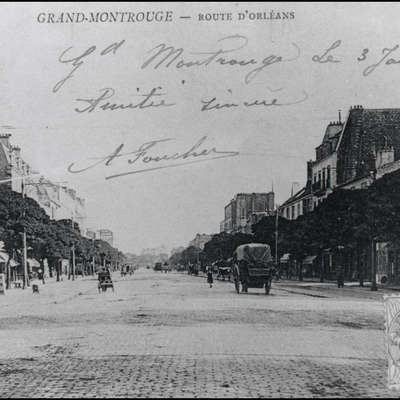 GRAND-MONTROUGE — ROUTE D'ORLÉANS
Gd Montrouge Le 3 Jan
Amitié sincère
A Foucher